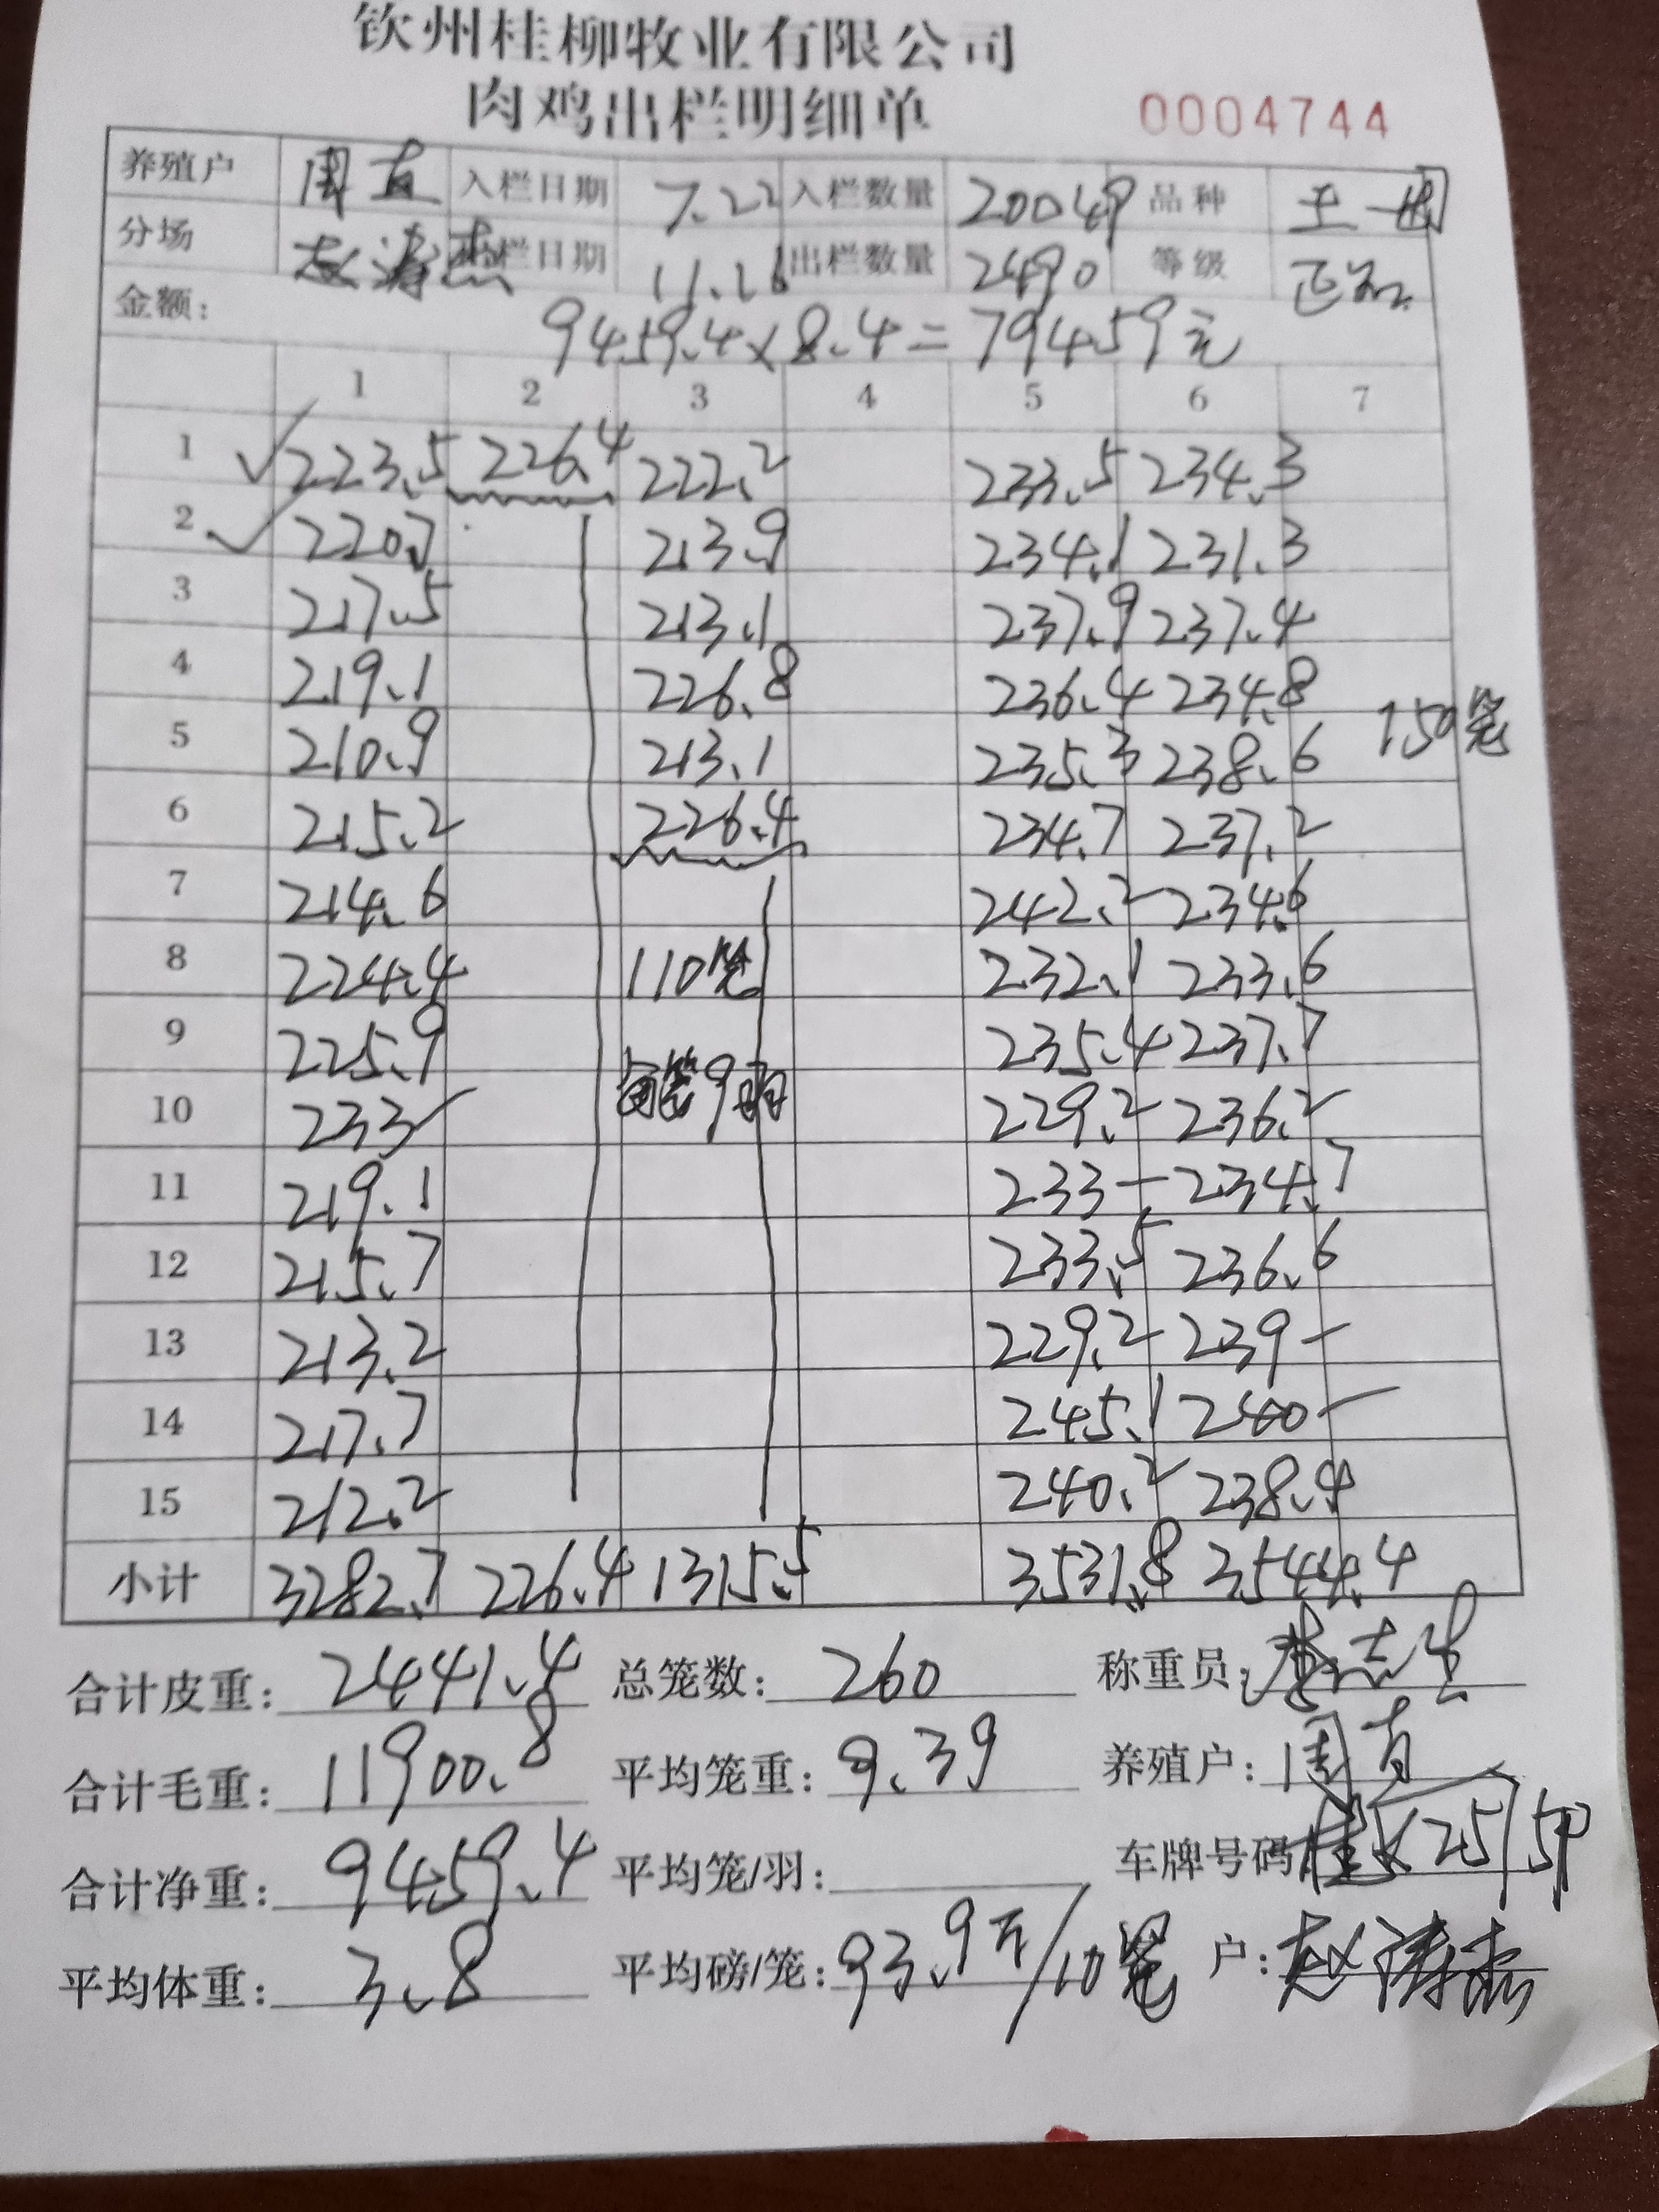 钦州桂柳牧业有限公司
肉鸡出栏明细单 0004744
养殖户 周直 入栏日期 7.22 入栏数量 20049 品种 土一
分场 赵涛杰 出栏日期 11.26 出栏数量 2490 等级 正品
金额: 9459.4×8.4=79459元
1 2 3 4 5 6 7
1 √223.5 226.4 222.2 233.5 234.3
2 √220.7 213.9 234.1 231.3
3 217.5 213.1 237.9 237.4
4 219.1 226.8 236.4 234.8
5 210.9 213.1 235.3 238.6 150笼
6 215.2 226.4 234.7 237.2
7 214.6 242.2 234.6
8 224.4 110笼 232.1 233.6
9 225.9 235.4 237.7
10 233 每笼9羽 229.2 236.2
11 219.1 233- 234.7
12 215.7 233.5 236.6
13 213.2 229.2 239-
14 217.7 245.1 240-
15 212.2 240.2 238.4
小计 3282.7 226.4 1315.5 3531.8 3544.4
合计皮重: 2441.4 总笼数: 260 称重员:
合计毛重: 11900.8 平均笼重: 9.39 养殖户: 周直
合计净重: 9459.4 平均笼/羽: 车牌号码
平均体重: 3.8 平均磅/笼: 93.9斤/10笼 户: 赵涛杰